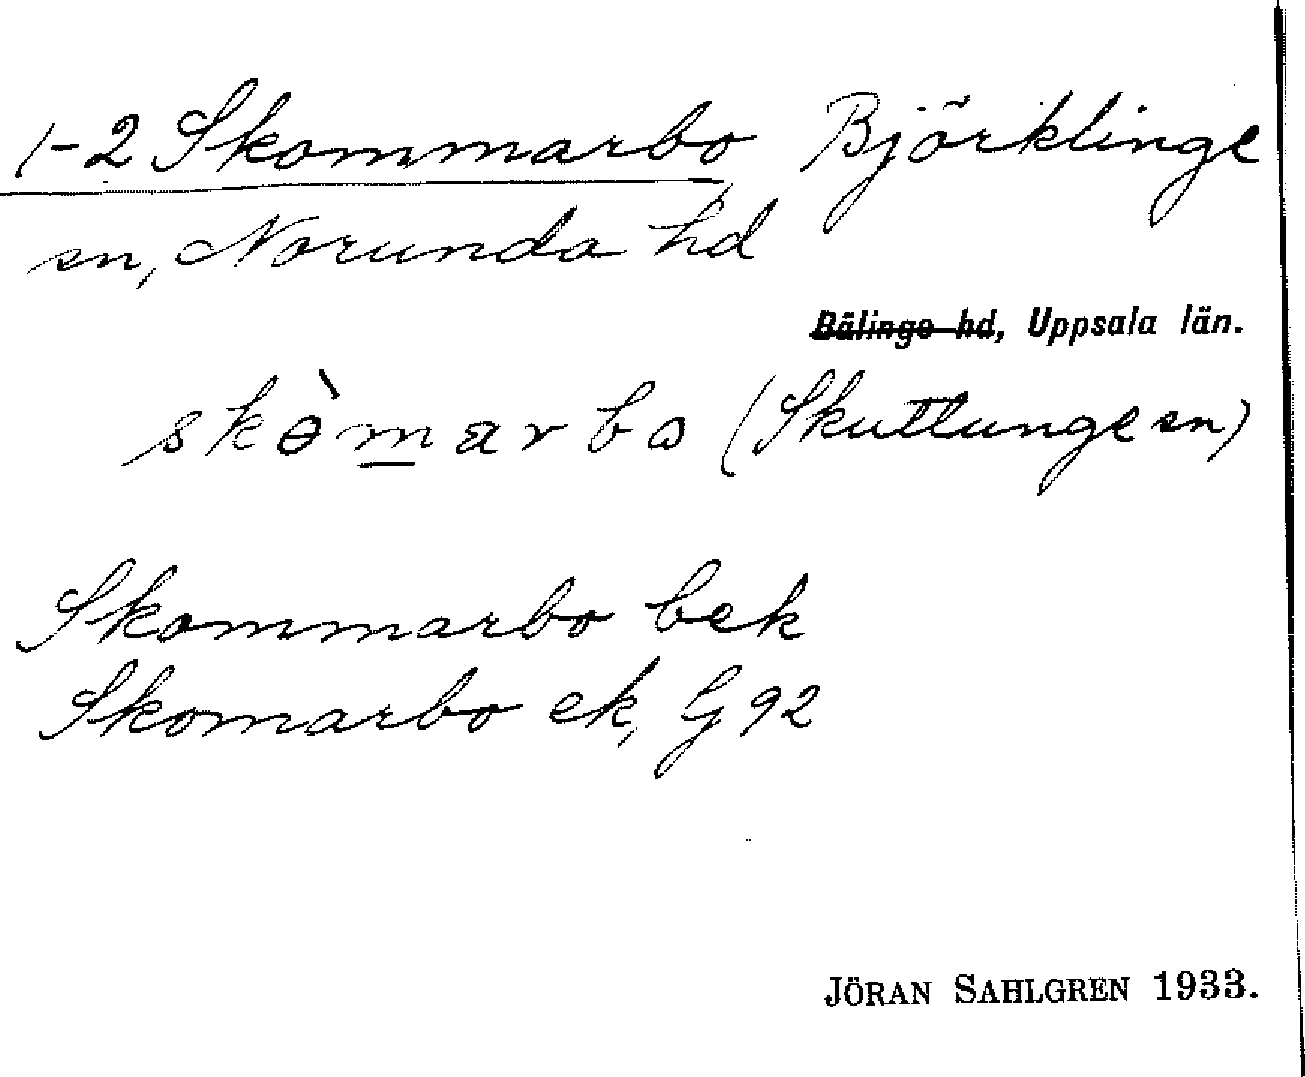 1-2 Skommarbo Björklinge
sn, Norunda hd
Bälinge hd, Uppsala län.
skɵ̀m̲arbo (Skuttunge sn)
Skommarbo bek
Skomarbo ek, G 92
JÖRAN SAHLGREN 1933.